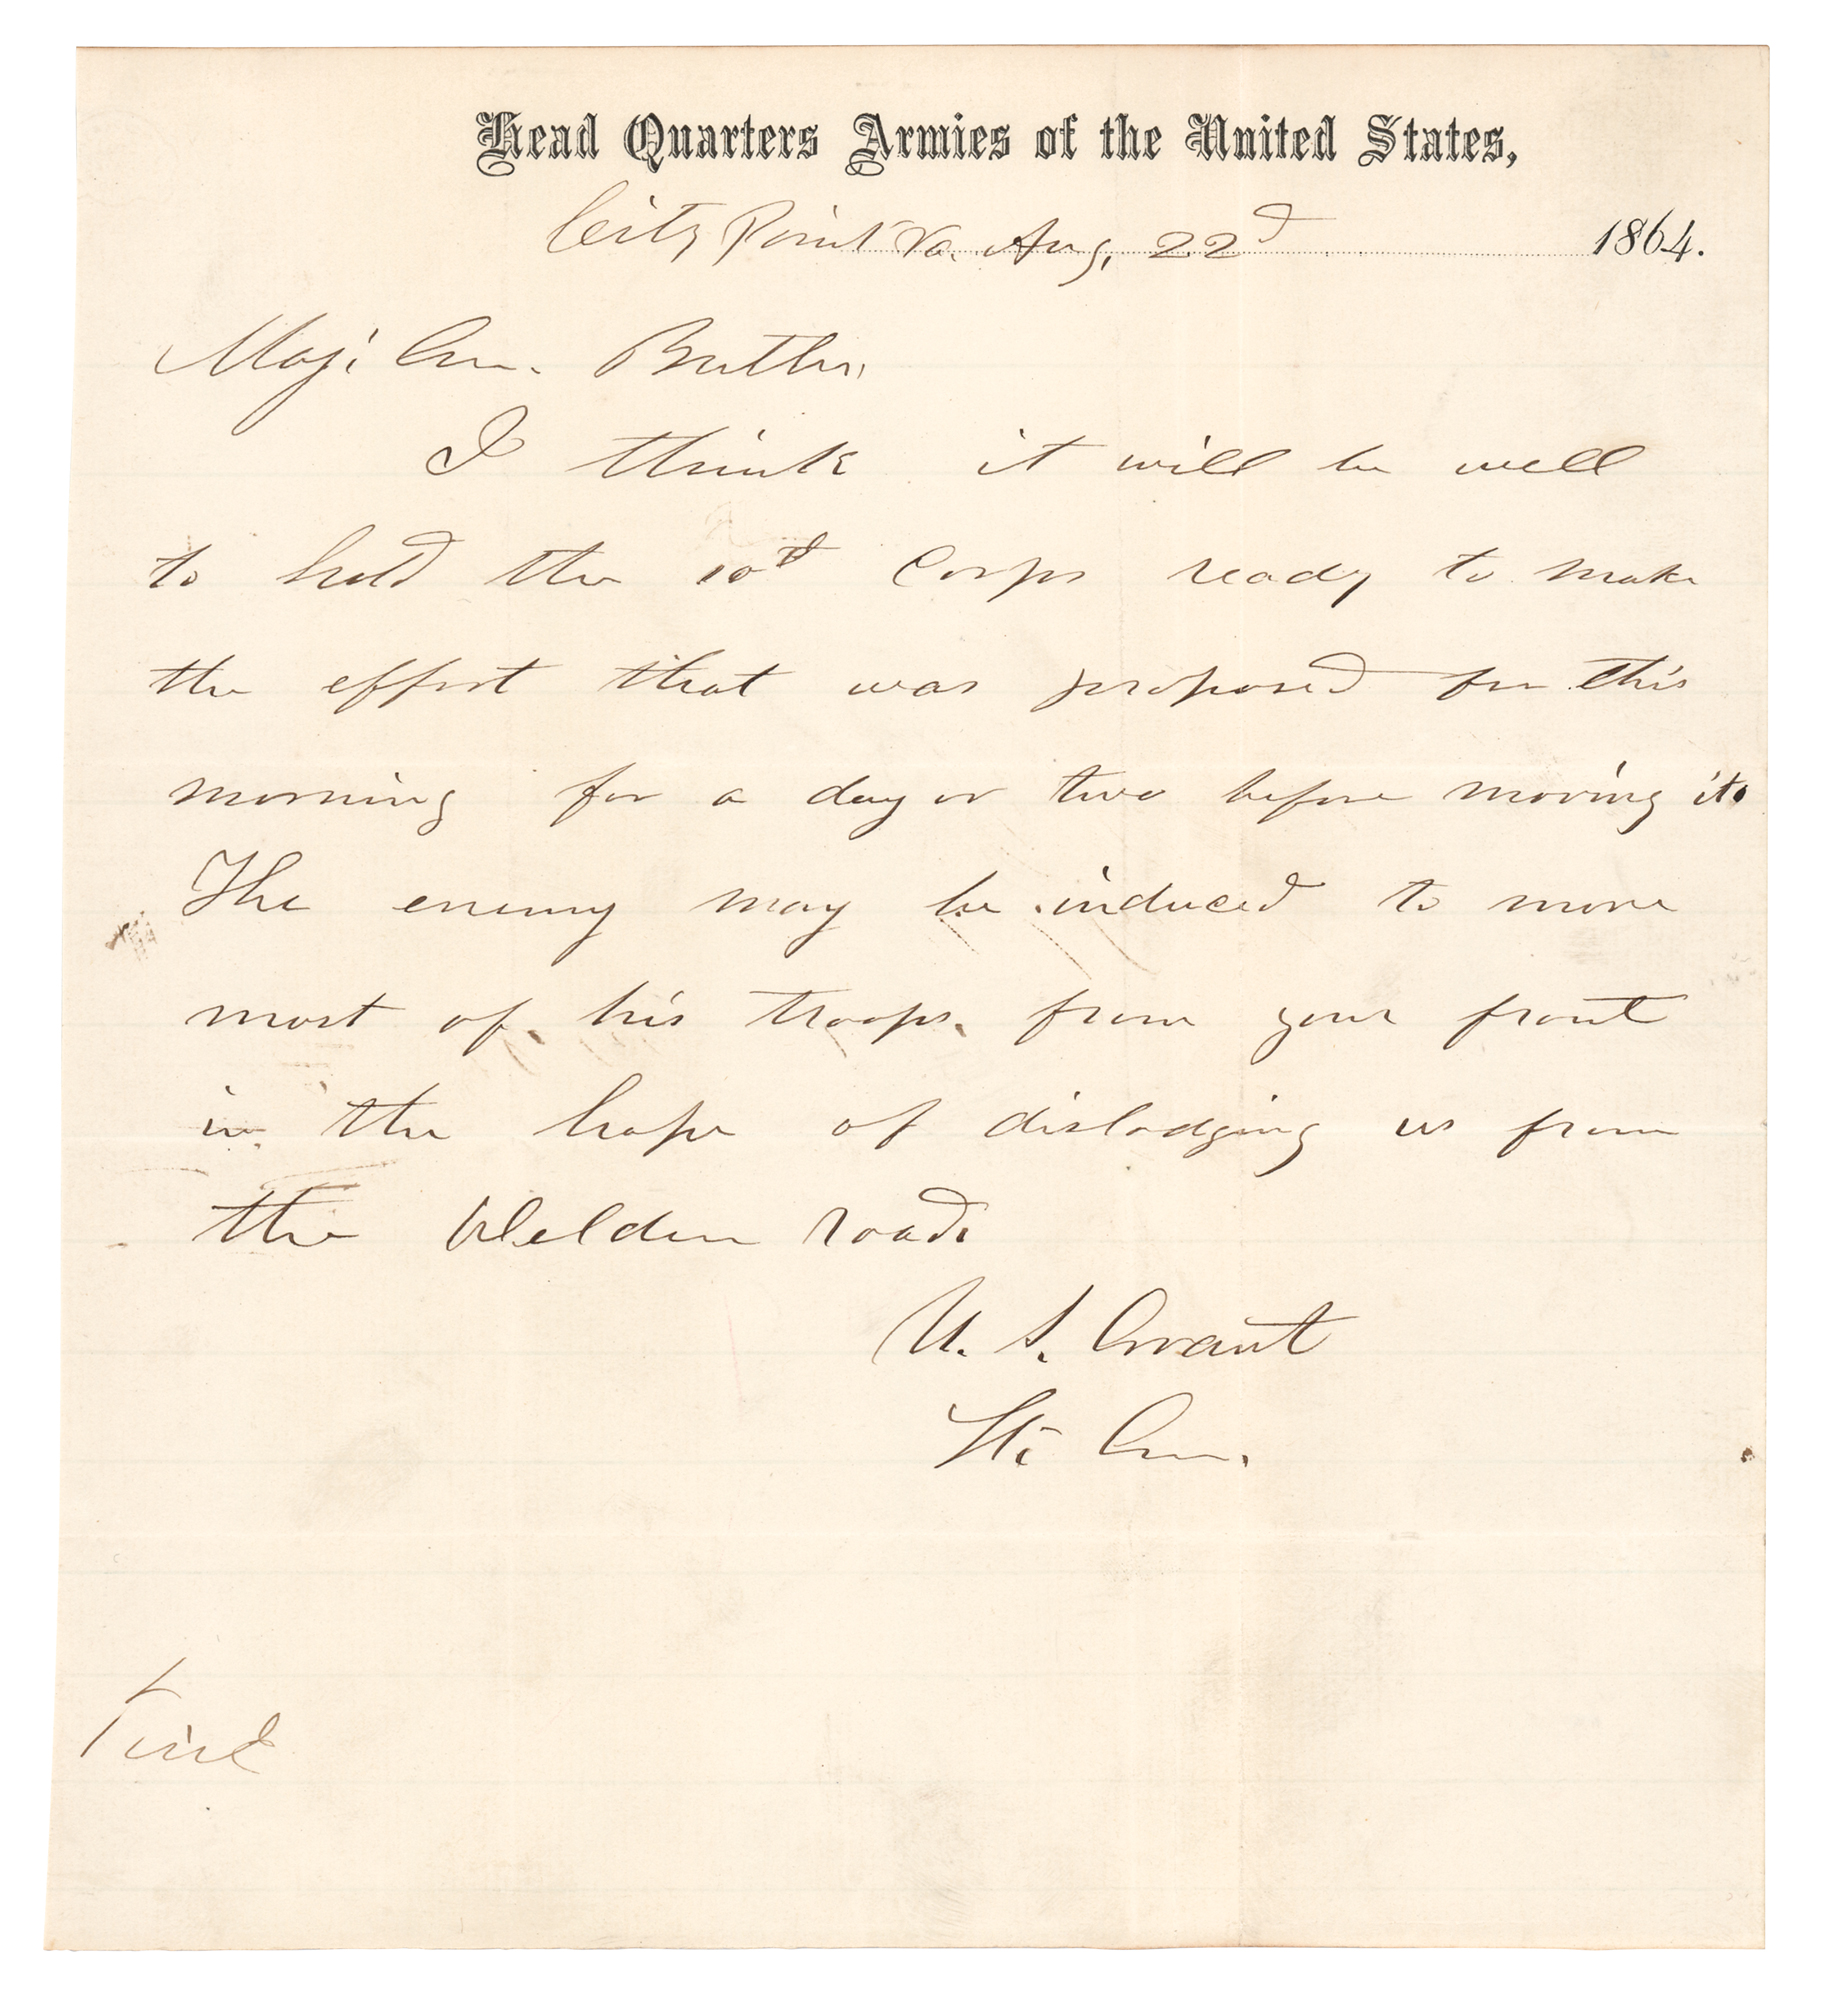 Head Quarters Armies of the United States,
City Point Va. Aug, 22d 1864.
Maj. Gen. Butler,
I think it will be well
to hold the 10th Corps ready to make
the effort that was proposed for this
morning for a day or two before moving it.
The enemy may be induced to move
most of his troops from your front
in the hope of dislodging us from
the Weldon road.
U. S. Grant
Lt. Gen.